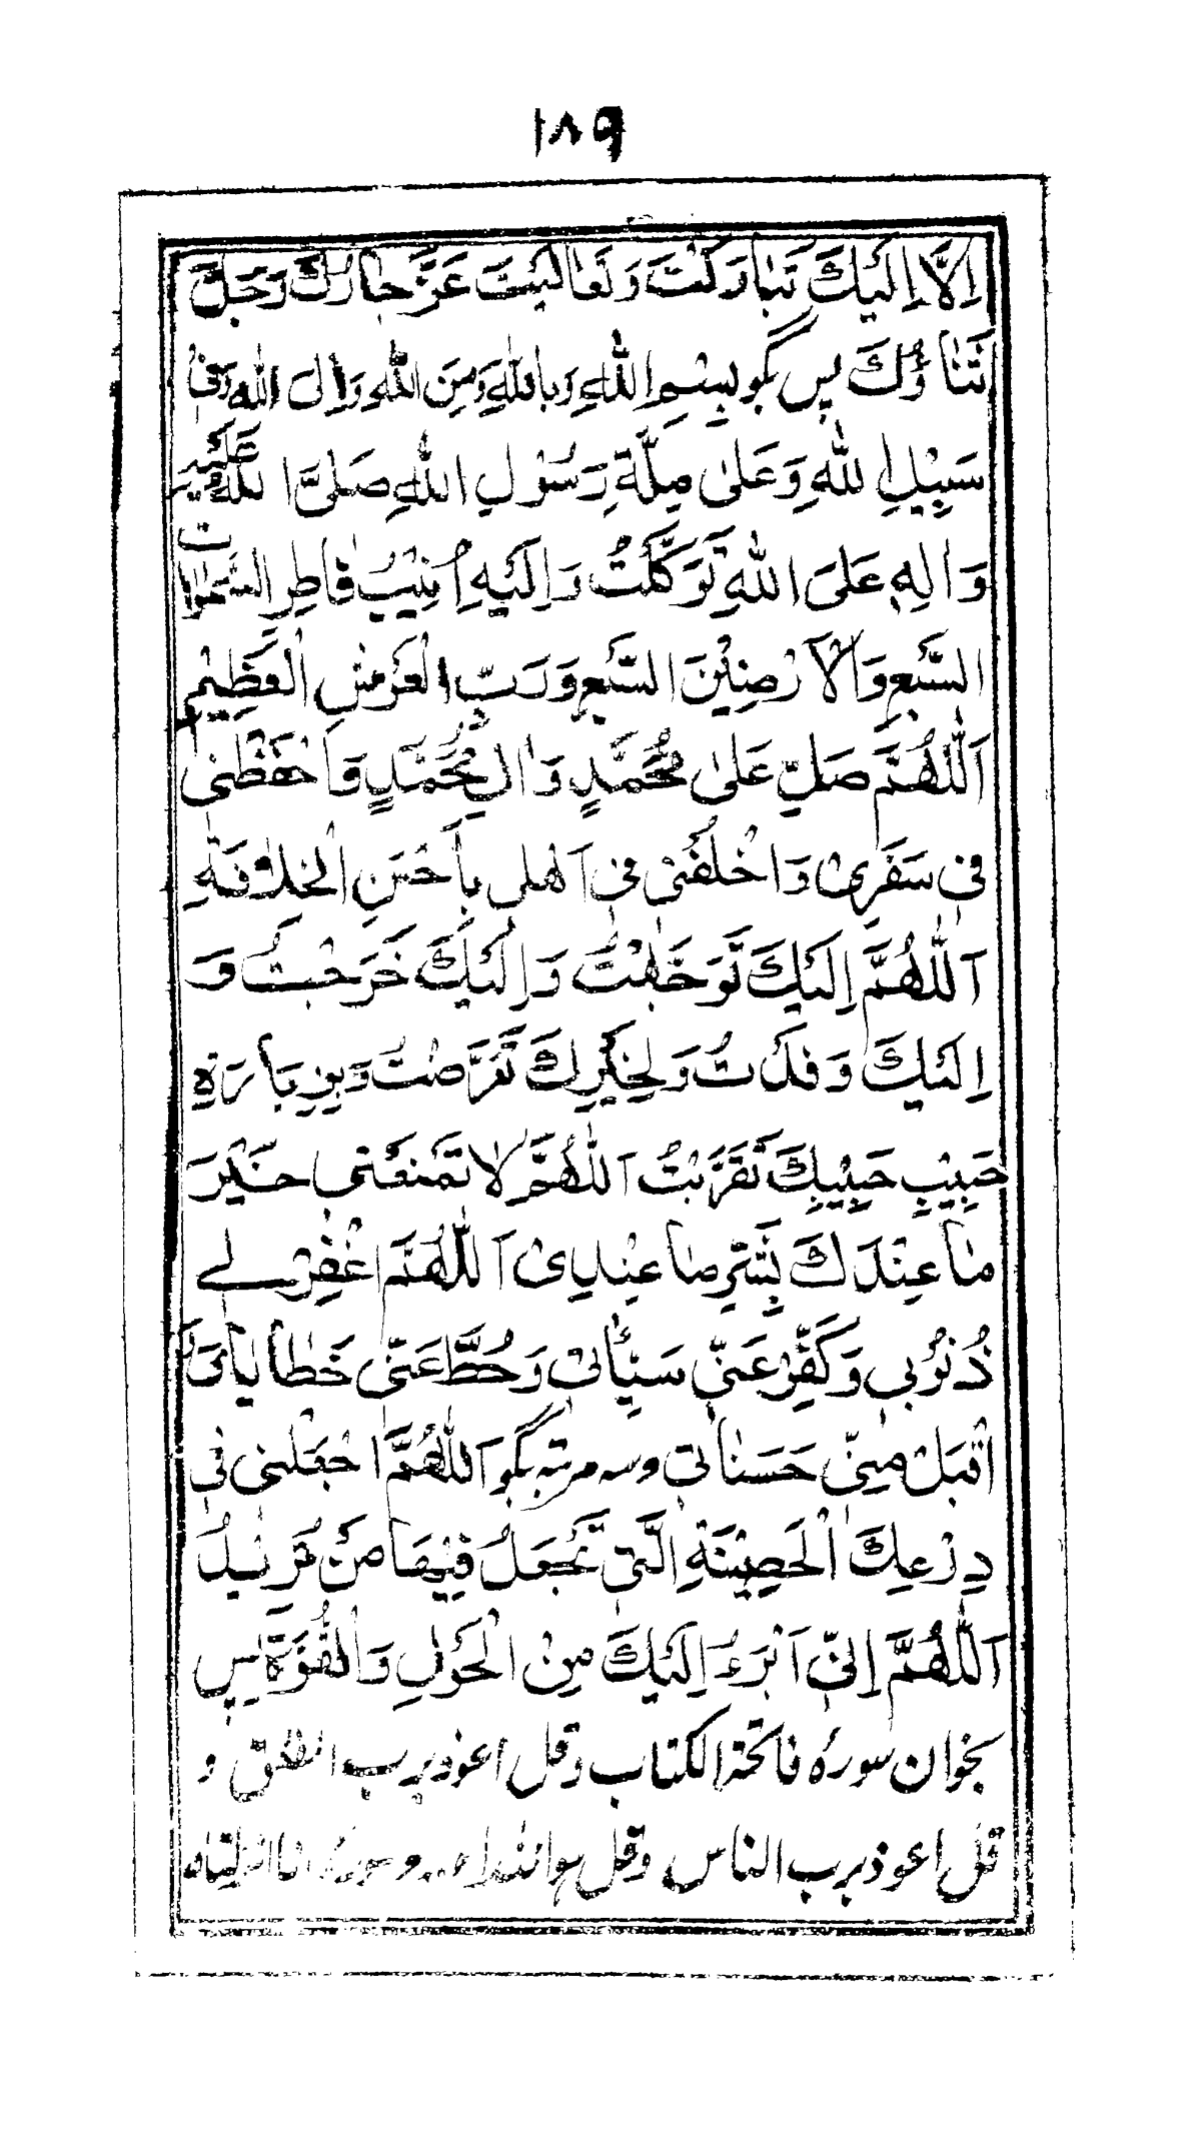 ١٨٩
اِلَّا اِلَيْكَ تَبٰارَكْتَ وَ تَعٰالَيْتَ عَزَّ جٰارُكَ وَ جَلَّ
ثَنٰاؤُكَ پس بگو بِسْمِ اللّٰهِ وَ بِاللّٰهِ وَ مِنَ اللّٰهِ وَ اِلَى اللّٰهِ وَ فِیْ
سَبِيْلِ اللّٰهِ وَ عَلیٰ مِلَّةِ رَسُوْلِ اللّٰهِ صَلَّی اللّٰهُ عَلَيْهِ
وَ اٰلِهٖ عَلَی اللّٰهِ تَوَكَّلْتُ وَ اِلَيْهِ اُنِيْبُ فٰاطِرِ السَّمٰوٰاتِ
السَّبْعِ وَ الْاَرْضِيْنَ السَّبْعِ وَ رَبِّ الْعَرْشِ الْعَظِيْمِ
اَللّٰهُمَّ صَلِّ عَلیٰ مُحَمَّدٍ وَ اٰلِ مُحَمَّدٍ وَ احْفَظْنِیْ
فِیْ سَفَرِیْ وَ اخْلُفْنِیْ فِیْ اَهْلِی بِاَحْسَنِ الْخِلٰافَةِ
اَللّٰهُمَّ اِلَيْكَ تَوَجَّهْتُ وَ اِلَيْكَ خَرَجْتُ وَ
اِلَيْكَ وَفَدْتُ وَ لِخَيْرِكَ تَعَرَّضْتُ وَ بِزِيٰارَةِ
حَبِيْبِ حَبِيْبِكَ تَقَرَّبْتُ اَللّٰهُمَّ لَا تَمْنَعْنِی خَيْرَ
مٰا عِنْدَكَ بِشَرِّ مٰا عِنْدِیْ اَللّٰهُمَّ اغْفِرْ لِے
ذُنُوْبِی وَ كَفِّرْ عَنِّی سَيِّئٰاتِیْ وَ حُطَّ عَنِّی خَطٰايٰایَ وَ
اقْبَلْ مِنِّی حَسَنٰاتِی و سه مرتبه بگو اَللّٰهُمَّ اجْعَلْنِی فِی
دِرْعِكَ الْحَصِيْنَةِ الَّتِیْ تَجْعَلُ فِيْهَا مَنْ تُرِيْدُ
اَللّٰهُمَّ اِنِّیْ اَبْرَءُ اِلَيْكَ مِنَ الْحَوْلِ وَ الْقُوَّةِ پس
بخوان سورۂ فاتحة الکتاب و قل اعوذ برب الفلق و
قل اعوذ برب الناس و قل هو الله احد و سورۂ انا انزلناه